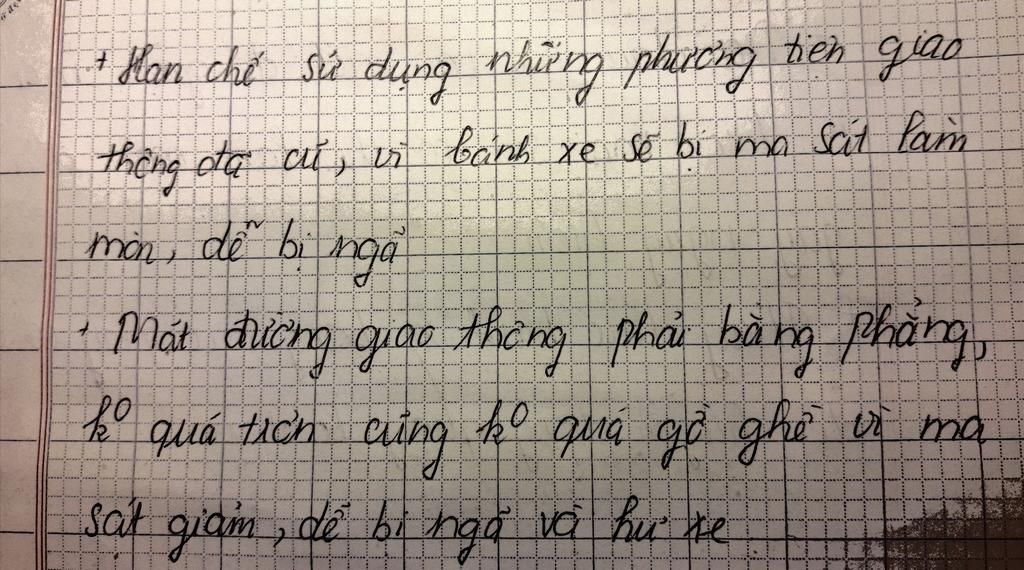 + Hạn chế sử dụng những phương tiện giao
thông đã cũ, vì bánh xe sẽ bị ma sát làm
mòn, dễ bị ngã
+ Mặt đường giao thông phải bằng phẳng,
k⁰ quá trơn cũng k⁰ quá gồ ghề vì ma
sát giảm, dễ bị ngã và hư xe